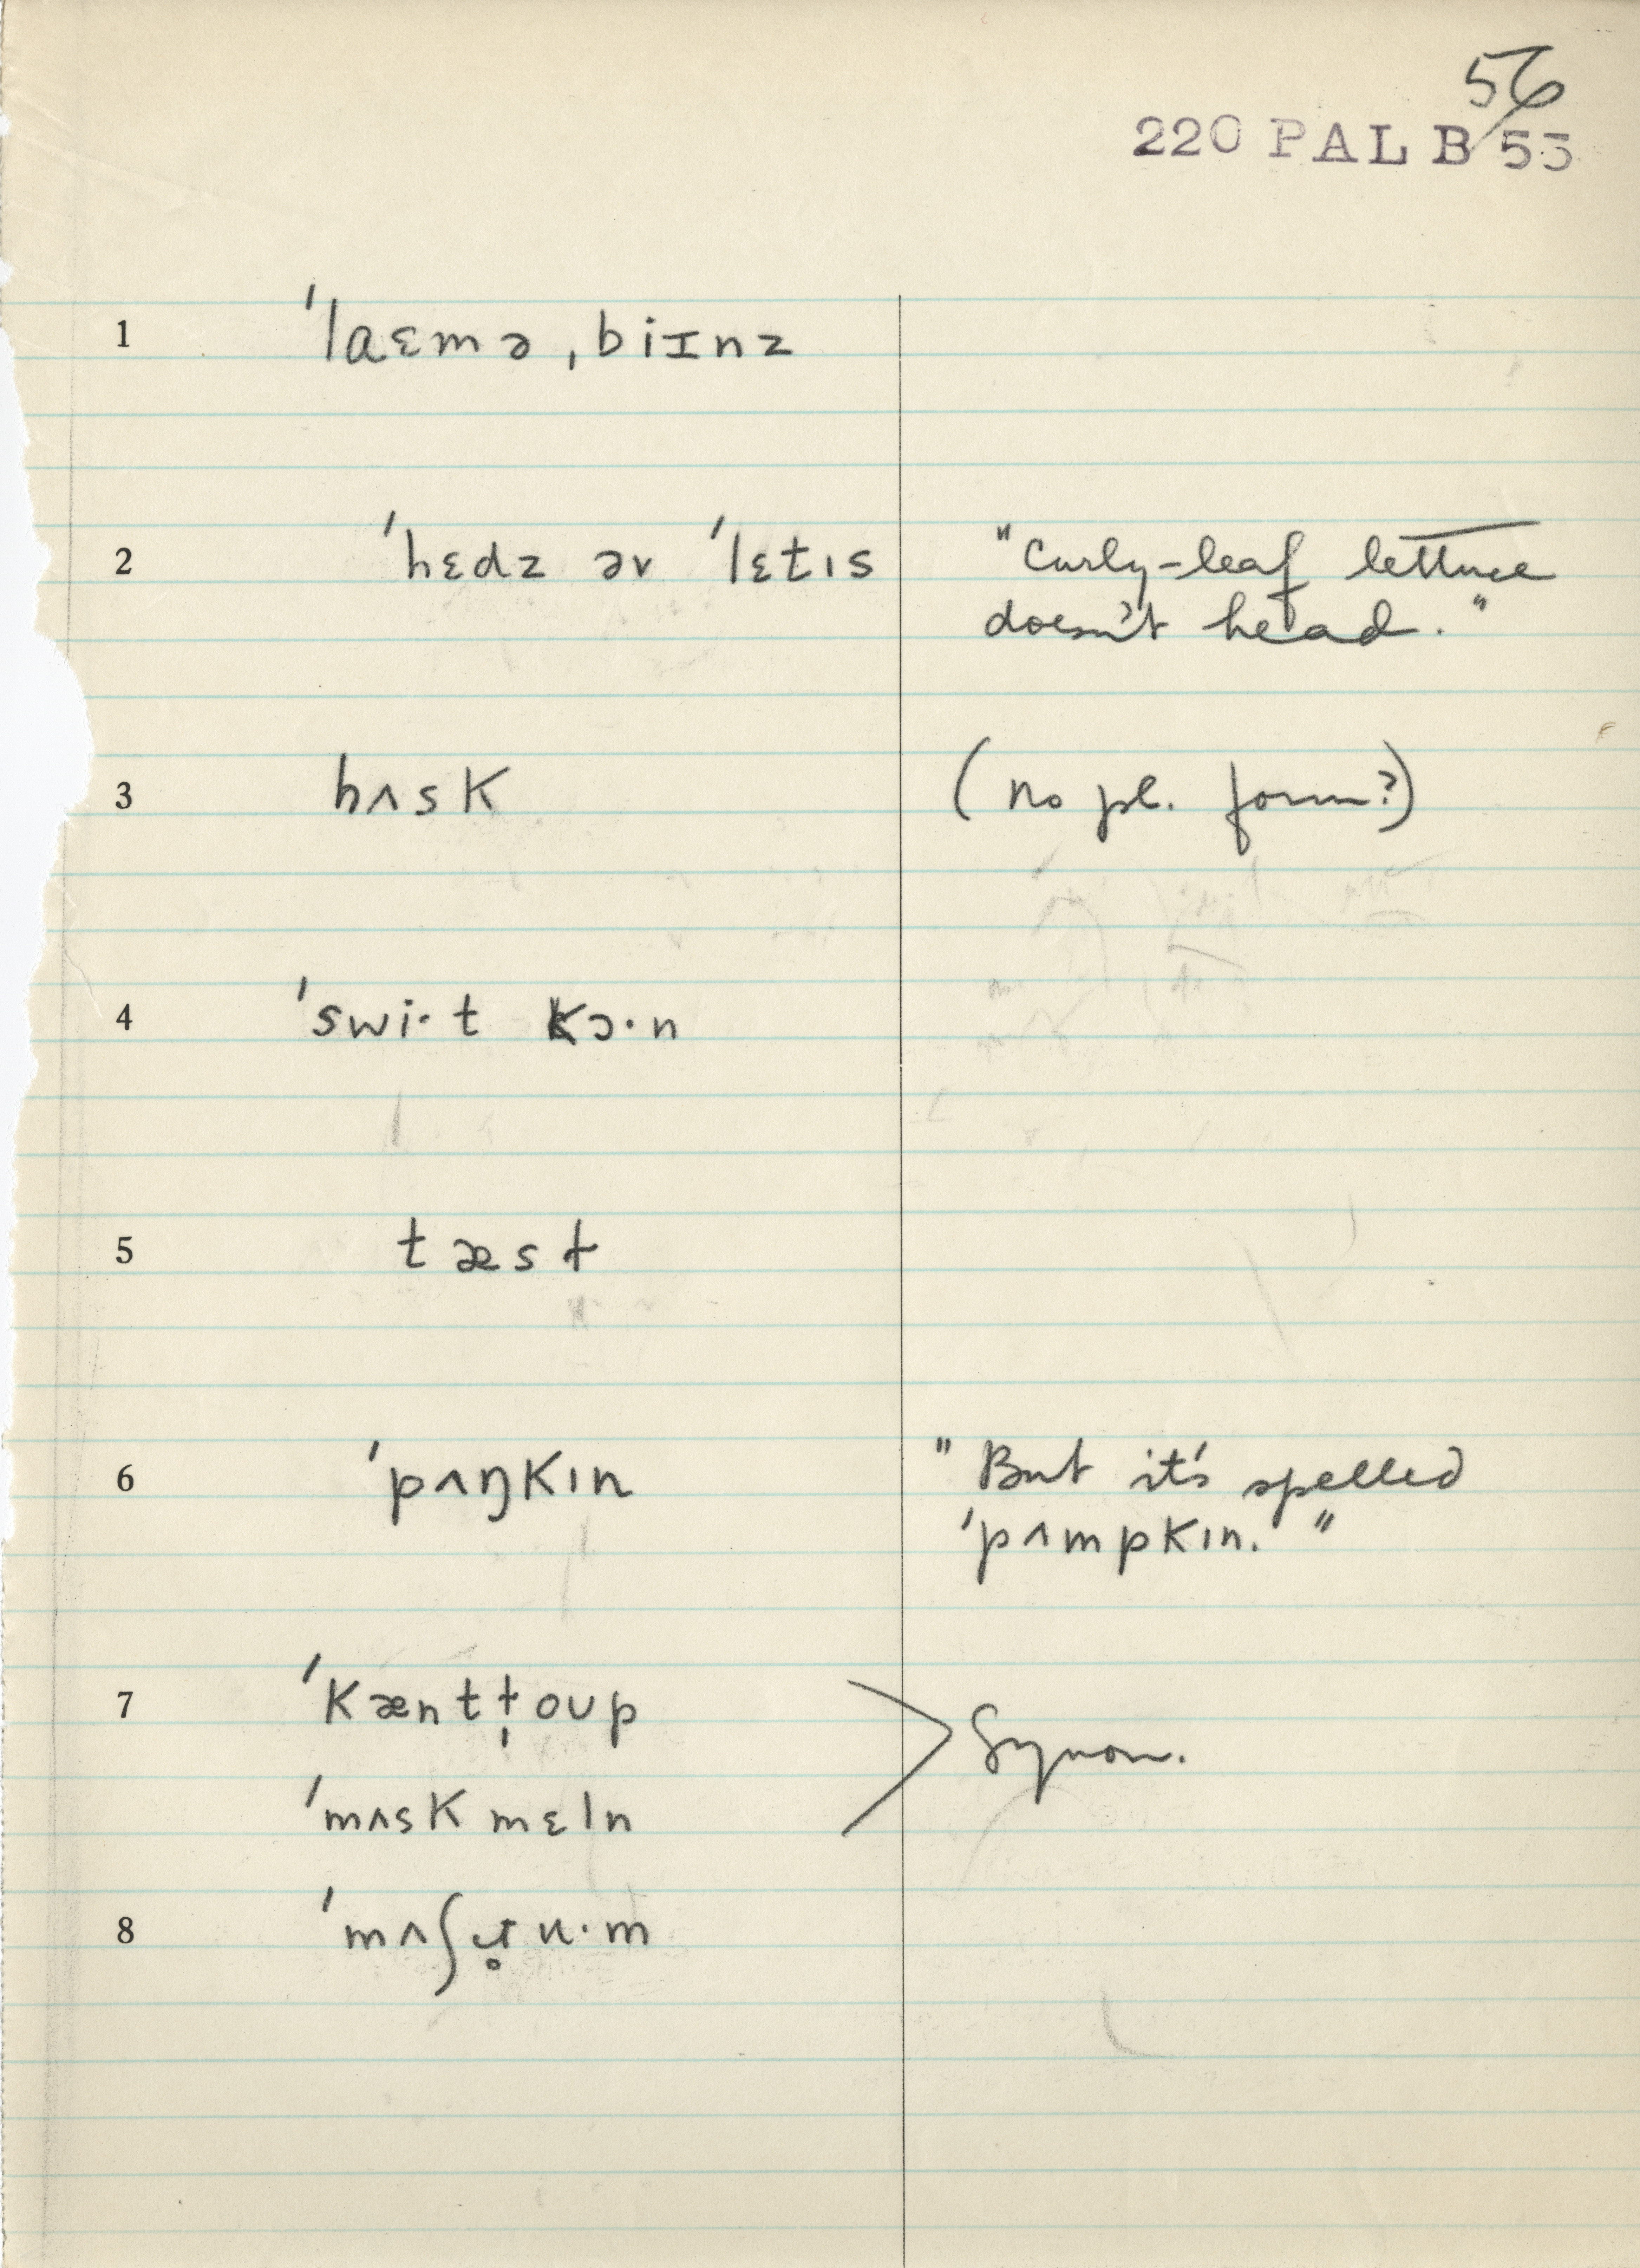 56
220 PAL B 55
1 ˈlaɛmə ˌbiɪnz
2 ˈhɛdz əv ˈlɛtɪs "Curly-leaf lettuce
doesn't head."
3 hʌsk (no pl. form?)
4 ˈswi·t kɔ·n
5 tæst
6 ˈpʌŋkɪn "But it's spelled
ˈpʌmpkɪn."
7 ˈkænt ˌtoʊp
ˈmʌsk mɛln
> Synon.
8